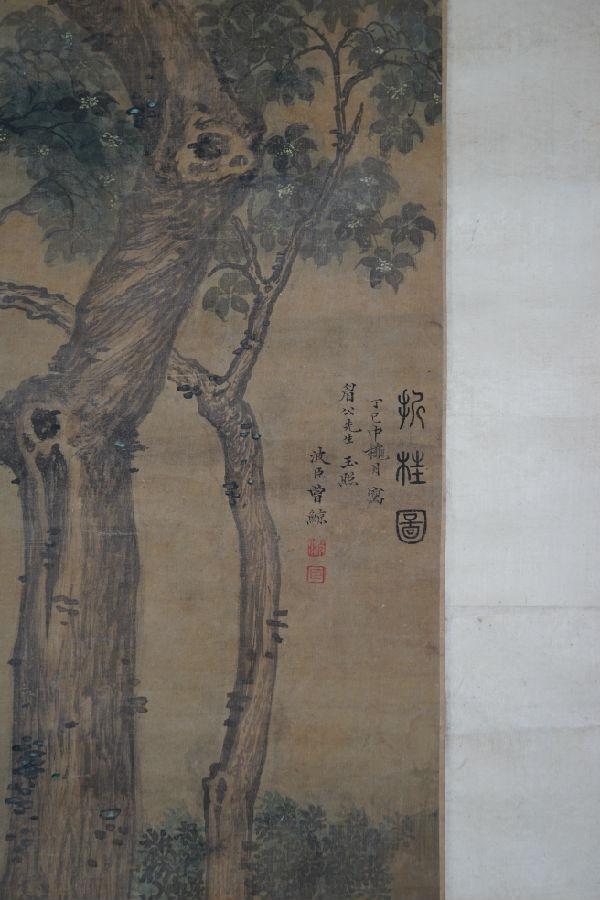 折桂圖
丁巳中秋月寫
眉公先生玉照
波臣曾鯨